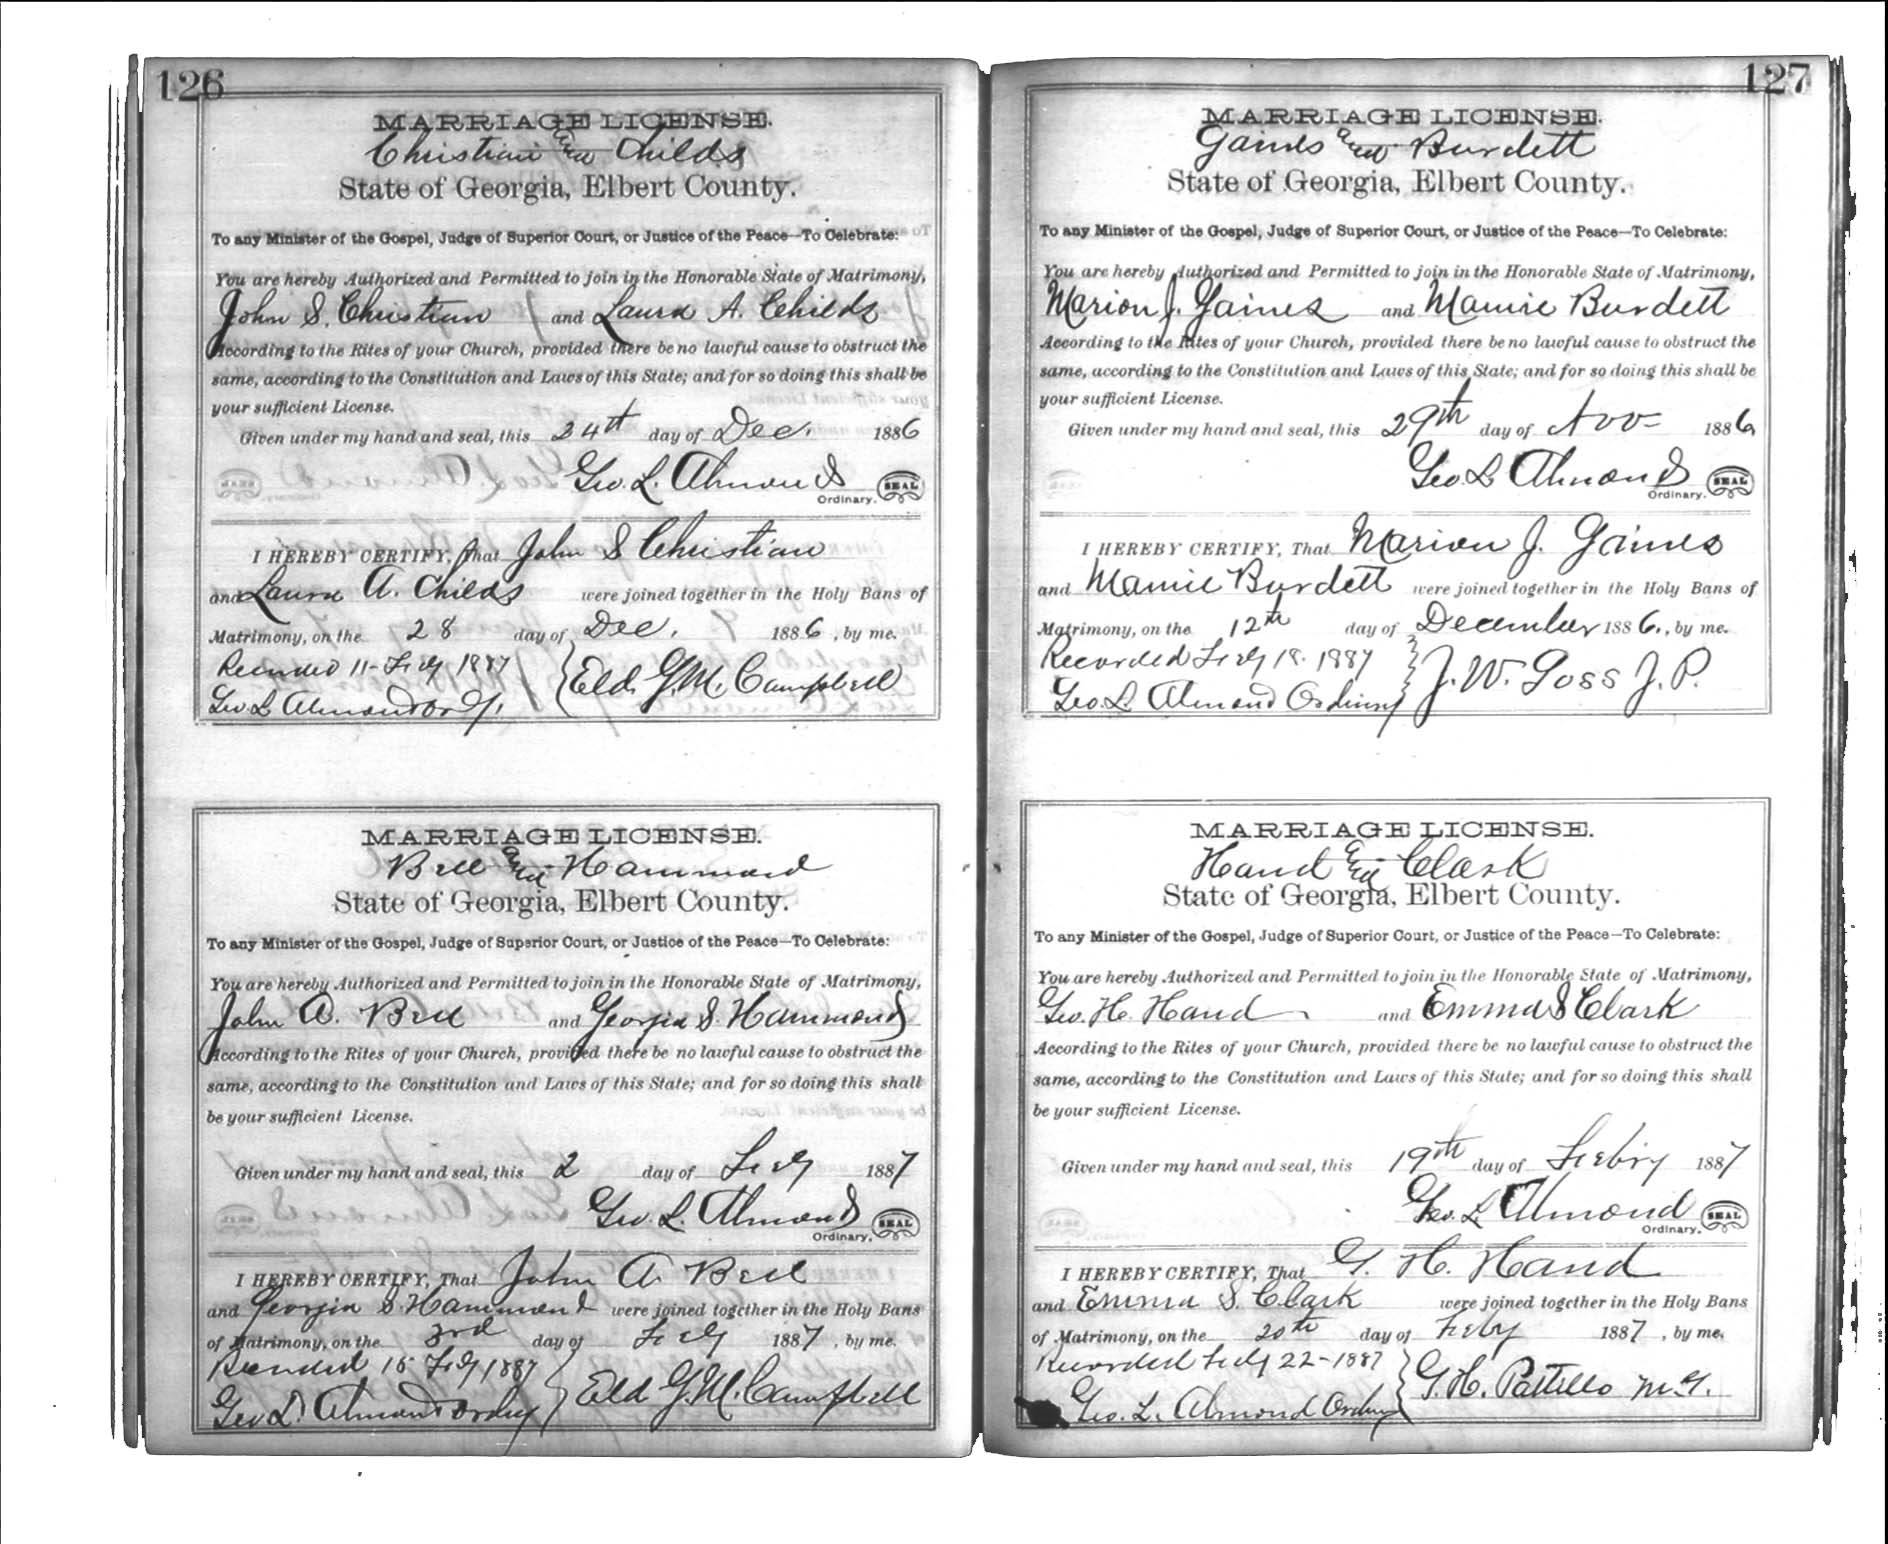 126
MARRIAGE LICENSE.
Christian and Childs
State of Georgia, Elbert County.
To any Minister of the Gospel, Judge of Superior Court, or Justice of the Peace—To Celebrate:
You are hereby Authorized and Permitted to join in the Honorable State of Matrimony,
John S. Christian and Laura A. Childs
According to the Rites of your Church, provided there be no lawful cause to obstruct the
same, according to the Constitution and Laws of this State; and for so doing this shall be
your sufficient License.
Given under my hand and seal, this 24th day of Dec. 1886
Geo. L. Almond SEAL
Ordinary.
I HEREBY CERTIFY, That John S Christian
and Laura A. Childs were joined together in the Holy Bans of
Matrimony, on the 28 day of Dec. 1886, by me.
Recorded 11- Feby 1887
Geo L Almond Ordy. Eld. G. M. Campbell
MARRIAGE LICENSE.
Bell and Hammond
State of Georgia, Elbert County.
To any Minister of the Gospel, Judge of Superior Court, or Justice of the Peace—To Celebrate:
You are hereby Authorized and Permitted to join in the Honorable State of Matrimony,
John A. Bell and Georgia S. Hammond
According to the Rites of your Church, provided there be no lawful cause to obstruct the
same, according to the Constitution and Laws of this State; and for so doing this shall
be your sufficient License.
Given under my hand and seal, this 2 day of Feby 1887
Geo. L. Almond SEAL
Ordinary.
I HEREBY CERTIFY, That John A. Bell
and Georgia S. Hammond were joined together in the Holy Bans
of Matrimony, on the 3rd day of Feby 1887, by me.
Recorded 15 Feby 1887
Geo L. Almond Ordny Eld G. M. Campbell
127
MARRIAGE LICENSE.
Gaines and Burdett
State of Georgia, Elbert County.
To any Minister of the Gospel, Judge of Superior Court, or Justice of the Peace—To Celebrate:
You are hereby Authorized and Permitted to join in the Honorable State of Matrimony,
Marion J. Gaines and Mamie Burdett
According to the Rites of your Church, provided there be no lawful cause to obstruct the
same, according to the Constitution and Laws of this State; and for so doing this shall be
your sufficient License.
Given under my hand and seal, this 29th day of Nov- 1886
Geo. L Almond SEAL
Ordinary.
I HEREBY CERTIFY, That Marion J. Gaines
and Mamie Burdett were joined together in the Holy Bans of
Matrimony, on the 12th day of December 1886., by me.
Recorded Feby 18. 1887
Geo. L Almond Ordinary J. W. Goss J. P.
MARRIAGE LICENSE.
Hand and Clark
State of Georgia, Elbert County.
To any Minister of the Gospel, Judge of Superior Court, or Justice of the Peace—To Celebrate:
You are hereby Authorized and Permitted to join in the Honorable State of Matrimony,
Geo. H. Hand and Emma S Clark
According to the Rites of your Church, provided there be no lawful cause to obstruct the
same, according to the Constitution and Laws of this State; and for so doing this shall
be your sufficient License.
Given under my hand and seal, this 19th day of Febry 1887
Geo. L. Almond SEAL
Ordinary.
I HEREBY CERTIFY, That G. H. Hand
and Emma S. Clark were joined together in the Holy Bans
of Matrimony, on the 20th day of Feby 1887, by me.
Recorded Feby 22-1887
Geo. L. Almond Ordny G. H. Pattillo M. G.